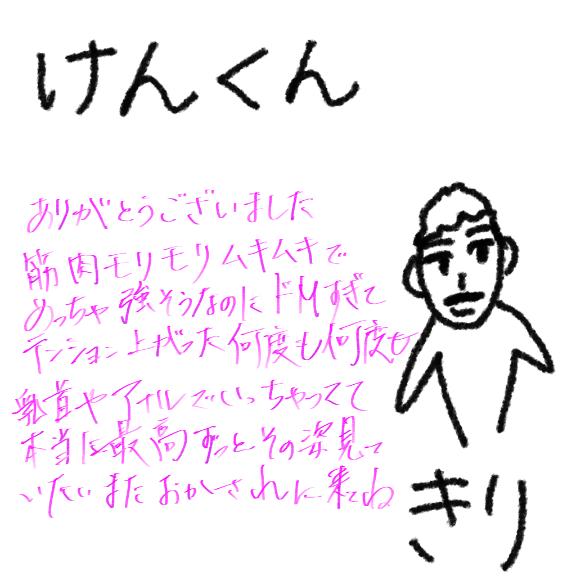 けんくん
ありがとうございました
筋肉モリモリムキムキで
めっちゃ強そうなのにドMすぎて
テンション上がった何度も何度も
乳首やアナルでいっちゃってて
本当に最高ずっとその姿見て
いたいまたおかされに来てね
きり